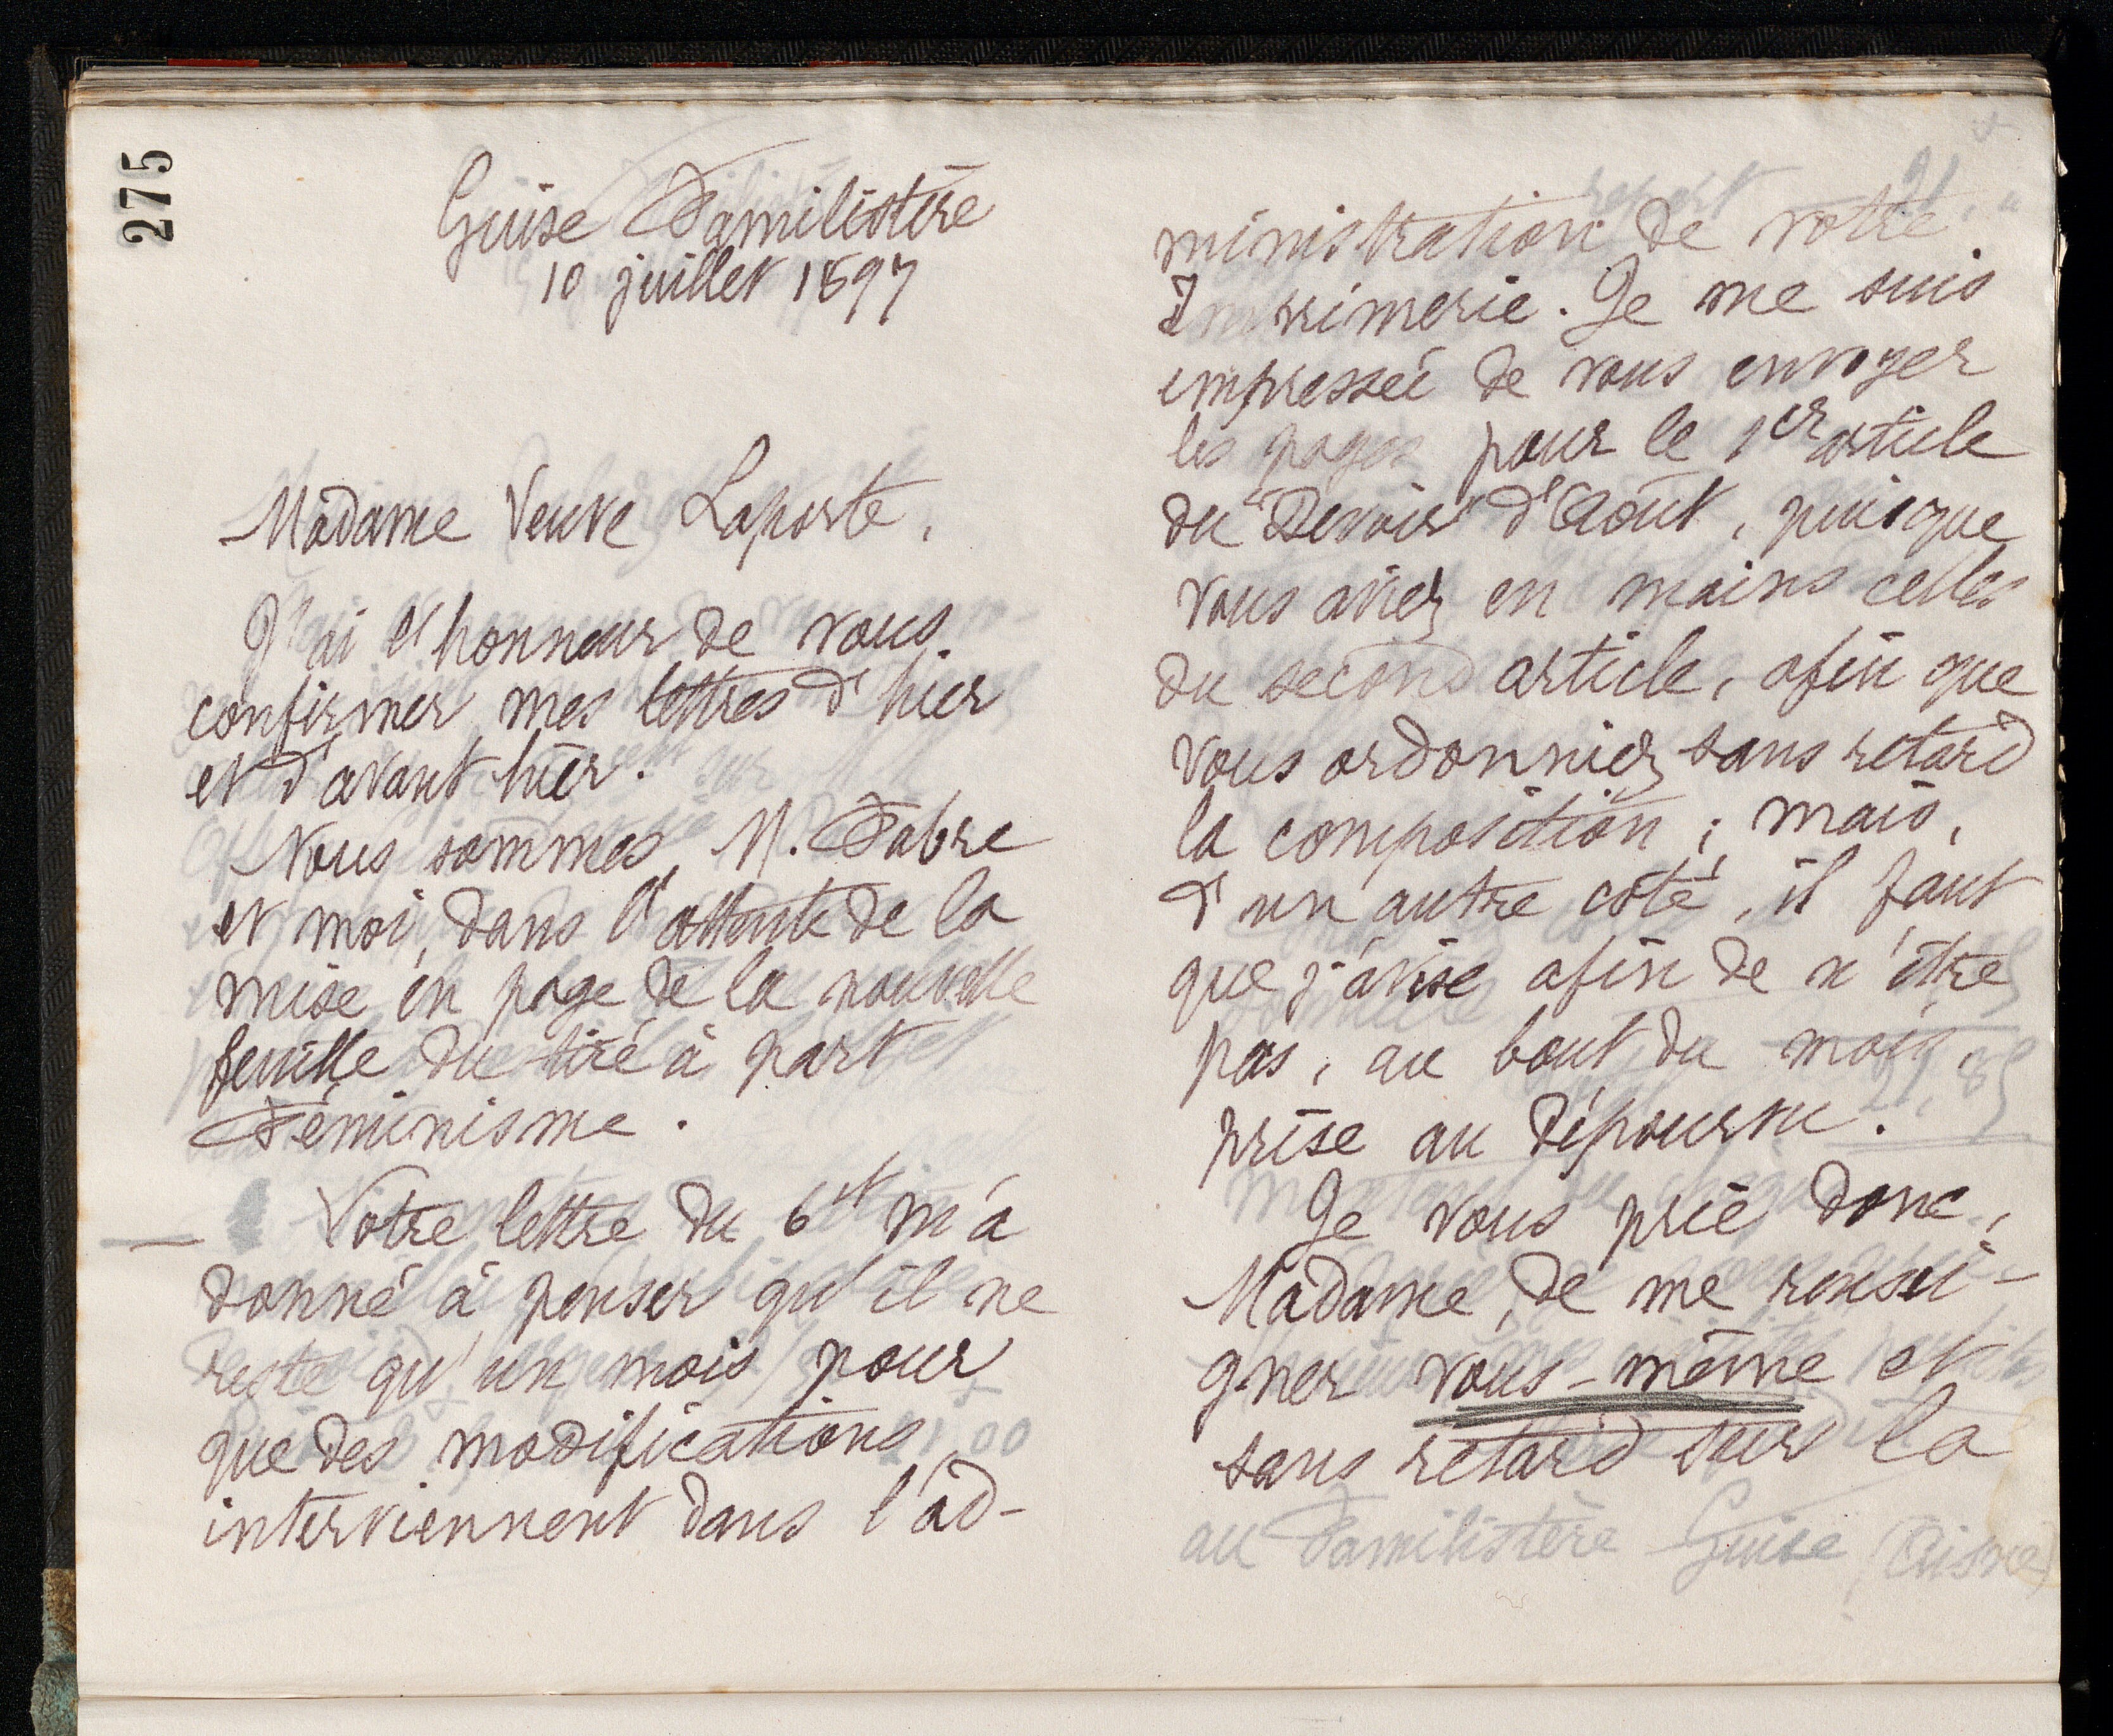 275
Guise Familistère
10 juillet 1897
Madame Veuve Laporte,
J'ai l'honneur de vous
confirmer mes lettres d'hier
et d'avant hier.
Nous sommes, M. Fabre
et moi, dans l'attente de la
mise en page de la nouvelle
feuille du tiré à part
Féminisme.
Votre lettre du 6 ct m'a
donné à penser qu'il ne
reste qu'un mois pour
que des modifications
interviennent dans l'ad-
ministration de votre
Imprimerie. Je me suis
empressée de vous envoyer
les pages pour le 1er article
du "Devoir" d'Août, puisque
vous aviez en mains celles
du second article, afin que
vous ordonniez sans retard
la composition; mais,
d'un autre côté, il faut
que j'avise afin de n'être
pas, au bout du mois,
prise au dépourvu.
Je vous prie donc,
Madame, de me rensei-
gner vous-même et
sans retard sur la
au Familistère Guise (Aisne)